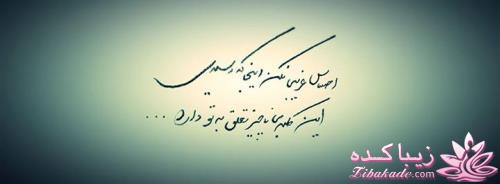 احساس غریبی نکن اینجا که رسیدی
این کلبه ی ناچیز تعلق به تو دارد ...
زیباکده
Zibakade.com